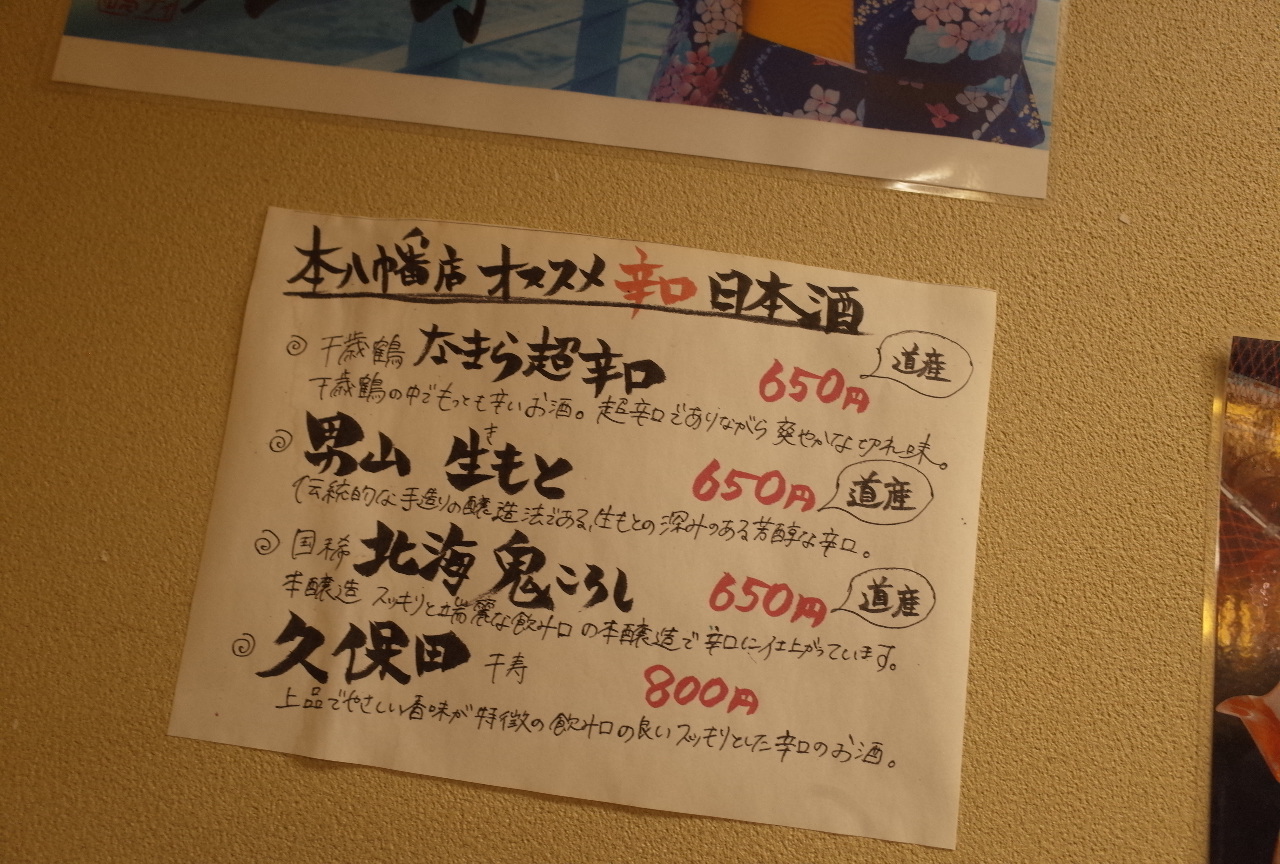 本八幡店 オススメ 辛口 日本酒
千歳鶴 なまら超辛口 650円 道産
千歳鶴の中でもっとも辛いお酒。超辛口でありながら爽やかな切れ味。
男山 生もと き 650円 道産
伝統的な手造りの醸造法である、生もとの深みのある芳醇な辛口。
国稀 北海鬼ころし 650円 道産
本醸造 スッキリと端麗な飲み口の本醸造で辛口に仕上がっています。
久保田 千寿 800円
上品でやさしい香味が特徴の飲み口の良いスッキリとした辛口のお酒。